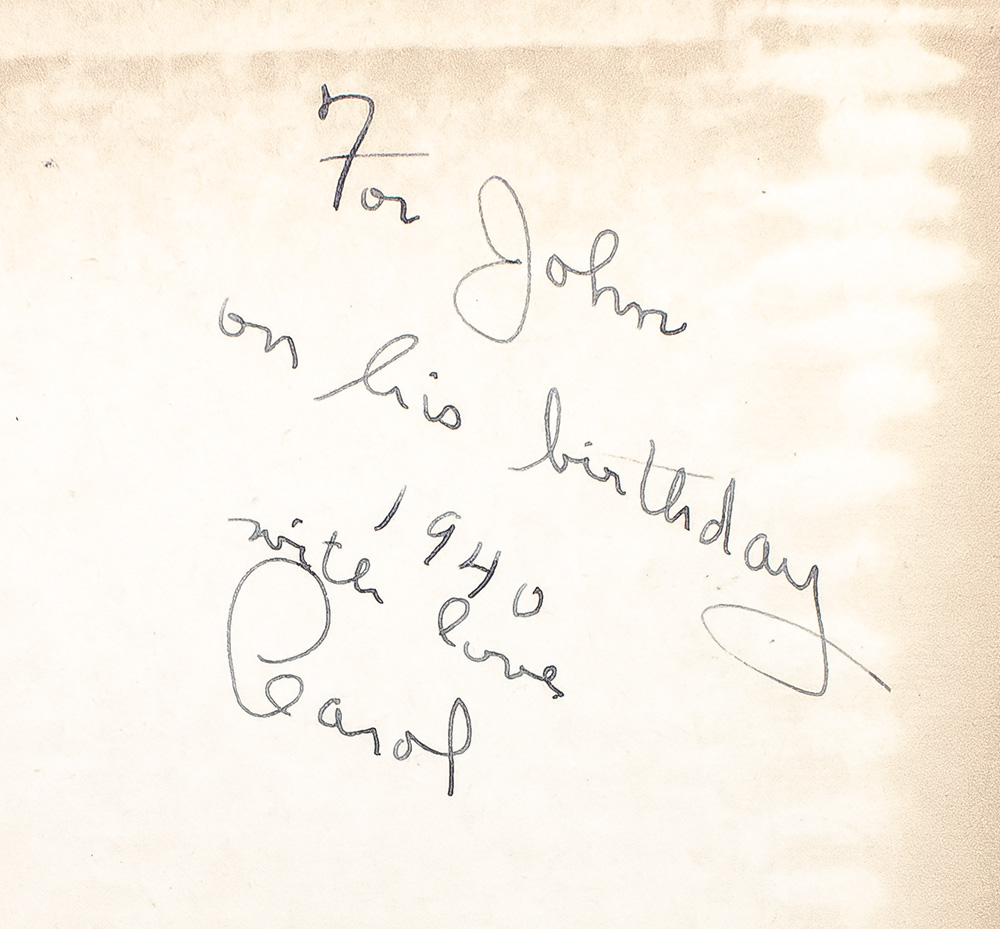 For John
on his birthday
1940
with love
Carol